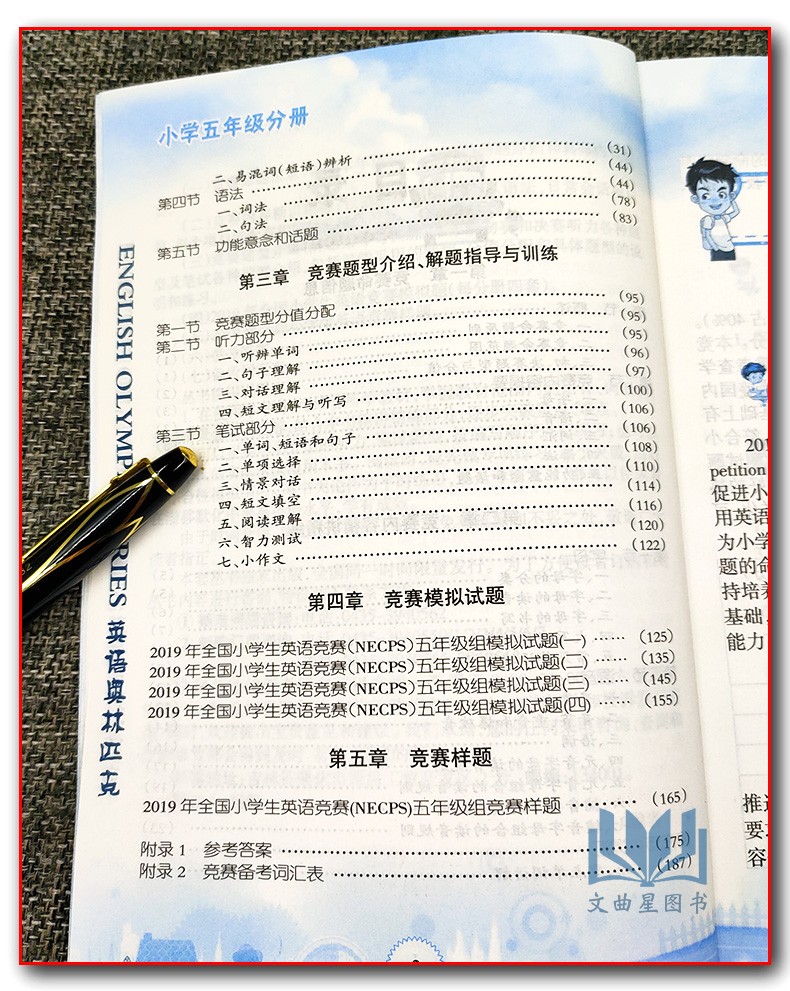 小学五年级分册
二、易混词(短语)辨析 ……………… (31)
第四节 语法 ……………… (44)
一、词法 ……………… (44)
二、句法 ……………… (78)
第五节 功能意念和话题 ……………… (83)
第三章 竞赛题型介绍、解题指导与训练
第一节 竞赛题型分值分配 ……………… (95)
第二节 听力部分 ……………… (95)
一、听辨单词 ……………… (95)
二、句子理解 ……………… (96)
三、对话理解 ……………… (97)
四、短文理解与听写 ……………… (100)
第三节 笔试部分 ……………… (106)
一、单词、短语和句子 ……………… (106)
二、单项选择 ……………… (108)
三、情景对话 ……………… (110)
四、短文填空 ……………… (114)
五、阅读理解 ……………… (116)
六、智力测试 ……………… (120)
七、小作文 ……………… (122)
第四章 竞赛模拟试题
2019年全国小学生英语竞赛(NECPS)五年级组模拟试题(一) …… (125)
2019年全国小学生英语竞赛(NECPS)五年级组模拟试题(二) …… (135)
2019年全国小学生英语竞赛(NECPS)五年级组模拟试题(三) …… (145)
2019年全国小学生英语竞赛(NECPS)五年级组模拟试题(四) …… (155)
第五章 竞赛样题
2019年全国小学生英语竞赛(NECPS)五年级组竞赛样题 ……… (165)
附录1 参考答案 ……………… (175)
附录2 竞赛备考词汇表 ……………… (187)
ENGLISH OLYMP
RIES 英语奥林匹克
占40%)。
201
petition
促进小
用英语
为小学
题的命
持培养
基础,
能力
推进
要求
容
文曲星图书